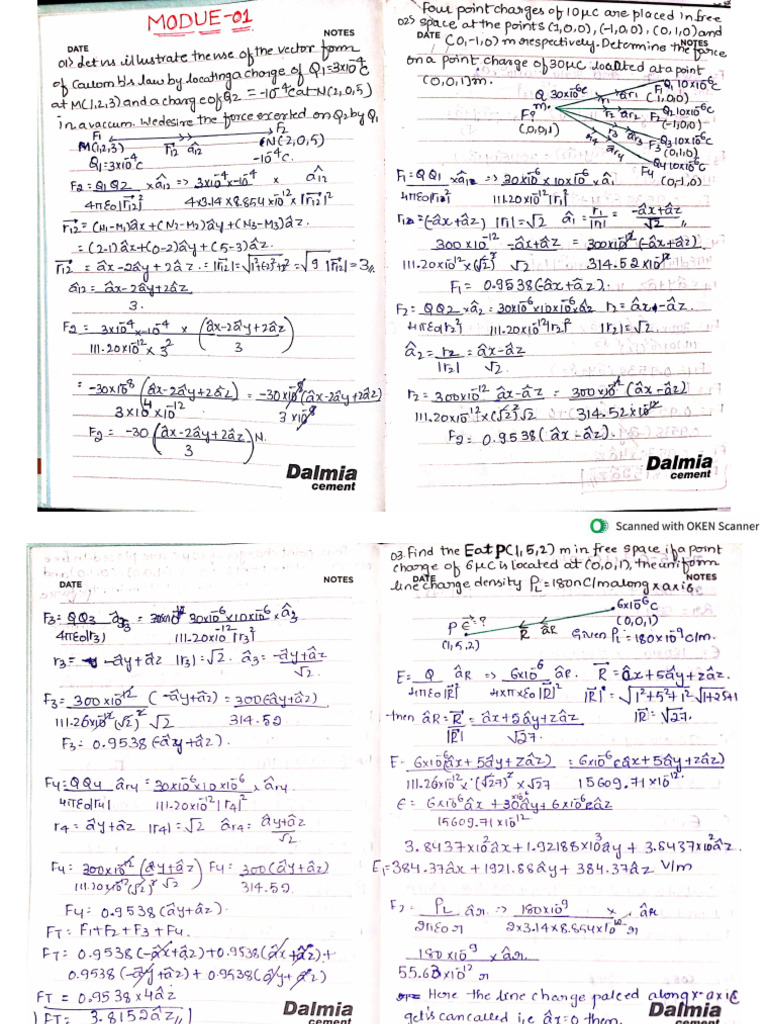 MODUE-01
DATE NOTES
01) let us illustrate the use of the vector form
of Coulomb's law by locating a charge of Q1=3x10^-4c
at M(1,2,3) and a charge of Q2 = -10^-4c at N(2,0,5)
in a vaccum. We desire the force exerted on Q2 by Q1
F1 F2
M(1,2,3) r12 â12 N(2,0,5)
Q1=3x10^-4c -10^-4c.
F2 = Q1Q2 / 4πε0|r12|² x â12 => 3x10^-4 x -10^-4 / 4x3.14x8.854x10^-12 x |r12|² x â12
r12 = (N1-M1)âx+(N2-M2)ây+(N3-M3)âz.
= (2-1)âx+(0-2)ây+(5-3)âz.
r12 = âx-2ây+2âz. = |r12|=√1²+(2)²+2² = √9 |r12|=3
â12 = âx-2ây+2âz / 3.
F2 = 3x10^-4 x -10^-4 / 111.20x10^-12 x 3² x (âx-2ây+2âz / 3)
= -30x10^-8 / 3x10^4x10^-12 (âx-2ây+2âz) = -30x10^-8 (âx-2ây+2âz) / 3x10^-8
F2 = -30 (âx-2ây+2âz / 3) N.
Dalmia
cement
Four point charges of 10μc are placed in free
02) space at the points (1,0,0), (-1,0,0), (0,1,0) and
DATE (0,-1,0) m respectively. Determine the force NOTES
on a point charge of 30μc located at a point
(0,0,1)m.
Q 30x10^-6c r1 âr1 F1 Q1 10x10^-6c (1,0,0)
F? (0,0,1) r2 âr2 Q2 10x10^-6c F2 (-1,0,0)
r3 âr3 F3 Q3 10x10^-6c (0,1,0)
r4 âr4 F4 Q4 10x10^-6c (0,-1,0)
F1 = QQ1 / 4πε0|r12|² x â12 => 30x10^-6x10x10^-6 / 111.20x10^-12|r1|² x â1
r12 = (-âx+âz) |r1|=√2 â1 = r1/|r1| = -âx+âz / √2
300x10^-12 / 111.20x10^-12x(√2)² -âx+âz / √2 = 300x10^-12(-âx+âz) / 314.52x10^-12
F1 = 0.9538(-âx+âz).
F2 = QQ2 / 4πε0|r2²| x â2 = 30x10^-6x10x10^-6 â2 / 111.20x10^-12|r2|² r2 = âx-âz |r2|=√2
â2 = r2/|r2| = âx-âz / √2
r2 = 300x10^-12 / 111.20x10^-12x(√2)² âx-âz / √2 = 300x10^-12 (âx-âz) / 314.52x10^-12
F2 = 0.9538(âx-âz).
Dalmia
cement
Scanned with OKEN Scanner
DATE NOTES
F3 = QQ3 / 4πε0|r3| â3 = 30x10^-6x10x10^-6 x â3 / 111.20x10^-12 |r3|²
r3 = -ây+âz |r3|=√2. â3 = -ây+âz / √2.
F3 = 300x10^-12 / 111.20x10^-12 (√2)² (-ây+âz) / √2 = 300(-ây+âz) / 314.52
F3 = 0.9538(-ây+âz).
F4 = QQ4 / 4πε0|r4| âr4 = 30x10^-6x10x10^-6 / 111.20x10^-12 |r4|² x âr4
r4 = ây+âz |r4|=√2 âr4 = ây+âz / √2
F4 = 300x10^-12 / 111.20x10^-12(√2)² (ây+âz) / √2 F4 = 300(ây+âz) / 314.52
F4 = 0.9538(ây+âz).
FT = F1+F2+F3+F4.
FT = 0.9538(-âx+âz)+0.9538(âx+âz)+
0.9538(-ây+âz)+0.9538(ây+âz)
FT = 0.9538x4âz
FT = 3.8152âz
Dalmia
cement
03. Find the E at P(1,5,2) m in free space if a point
charge of 6μc is located at (0,0,1), the uniform
line charge density ρL=180nC/m along x axis.
DATE NOTES
P E=? R âR 6x10^-6c
(1,5,2) (0,0,1) Given ρL=180x10^-9c/m.
E = Q / 4πε0|R|² âR => 6x10^-6 / 4xπxε0|R|² âR. R = âx+5ây+zâz
|R|² = √1²+5²+1² √1+25+1
then âR = R/|R| = âx+5ây+zâz / √27. |R|=√27.
E = 6x10^-6(âx+5ây+zâz) / 111.26x10^-12x(√27)²x√27 = 6x10^-6(âx+5ây+zâz) / 15609.71x10^-12
E = 6x10^-6âx+30x10^-6ây+6x10^-6âz / 15609.71x10^-12
3.8437x10²âx+1.92188x10³ây+3.8437x10²âz
E1=384.37âx+1921.88ây+384.37âz V/m
E2 = ρL / 2πε0r âr => 180x10^-9 / 2x3.14x8.854x10^-12 r x âR
180x10^-9 / 55.63x10^-12 r x âr.
Here the line charge palced along x-axis
get is cancalled i.e âx=0 then.
Dalmia
cement